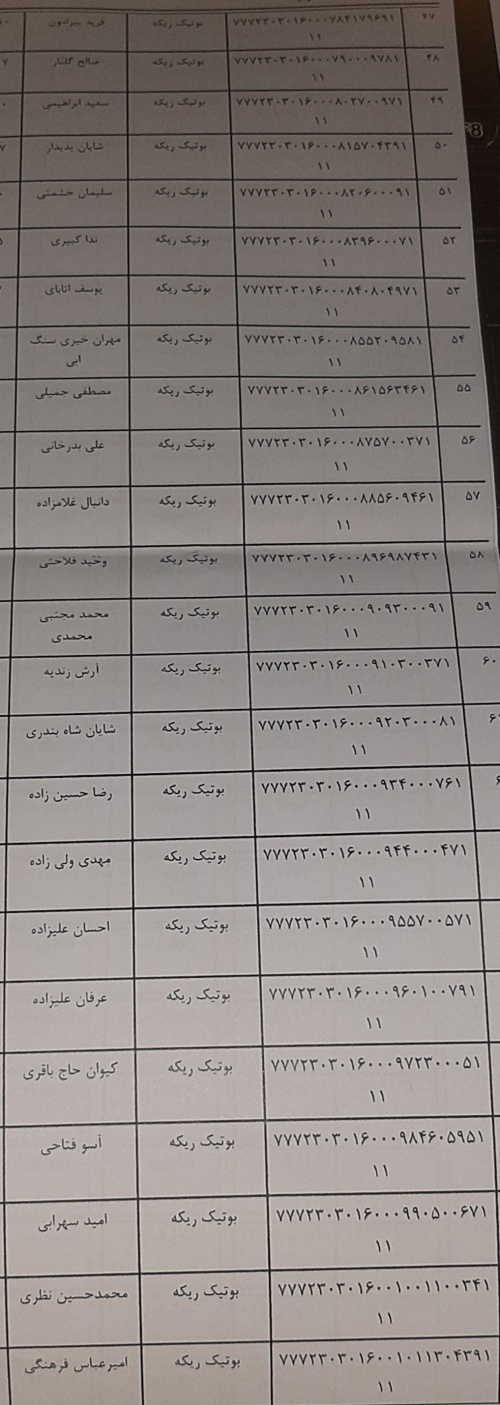 ۴۷ ۷۷۷۲۳۰۳۰۱۶۰۰۰۷۸۴۱۷۹۶۹۱ بوتیک ریکه فرید پیرامون
۱۱
۴۸ ۷۷۷۲۳۰۳۰۱۶۰۰۰۷۹۰۰۰۹۷۸۱ بوتیک ریکه صالح گلشار
۱۱
۴۹ ۷۷۷۲۳۰۳۰۱۶۰۰۰۸۰۲۷۰۰۹۷۱ بوتیک ریکه سعید ابراهیمی
۱۱
۵۰ ۷۷۷۲۳۰۳۰۱۶۰۰۰۸۱۵۷۰۴۳۹۱ بوتیک ریکه شایان پدیدار
۱۱
۵۱ ۷۷۷۲۳۰۳۰۱۶۰۰۰۸۲۰۶۰۰۰۹۱ بوتیک ریکه سلیمان حشمتی
۱۱
۵۲ ۷۷۷۲۳۰۳۰۱۶۰۰۰۸۳۹۶۰۰۰۷۱ بوتیک ریکه ندا کبیری
۱۱
۵۳ ۷۷۷۲۳۰۳۰۱۶۰۰۰۸۴۰۸۰۴۹۷۱ بوتیک ریکه یوسف اتابای
۱۱
۵۴ ۷۷۷۲۳۰۳۰۱۶۰۰۰۸۵۵۲۰۹۵۸۱ بوتیک ریکه مهران خیری سنگ
۱۱ ابی
۵۵ ۷۷۷۲۳۰۳۰۱۶۰۰۰۸۶۱۵۶۳۴۶۱ بوتیک ریکه مصطفی جمیلی
۱۱
۵۶ ۷۷۷۲۳۰۳۰۱۶۰۰۰۸۷۵۷۰۰۳۷۱ بوتیک ریکه علی بدرخانی
۱۱
۵۷ ۷۷۷۲۳۰۳۰۱۶۰۰۰۸۸۵۶۰۹۴۶۱ بوتیک ریکه دانیال غلامزاده
۱۱
۵۸ ۷۷۷۲۳۰۳۰۱۶۰۰۰۸۹۶۹۸۷۴۳۱ بوتیک ریکه وحید فلاحتی
۱۱
۵۹ ۷۷۷۲۳۰۳۰۱۶۰۰۰۹۰۹۳۰۰۰۹۱ بوتیک ریکه محمد مجتبی
۱۱ محمدی
۶۰ ۷۷۷۲۳۰۳۰۱۶۰۰۰۹۱۰۳۰۰۳۷۱ بوتیک ریکه آرش زندیه
۱۱
۷۷۷۲۳۰۳۰۱۶۰۰۰۹۲۰۳۰۰۰۸۱ بوتیک ریکه شایان شاه بندری
۱۱
۷۷۷۲۳۰۳۰۱۶۰۰۰۹۳۴۰۰۰۷۶۱ بوتیک ریکه رضا حسین زاده
۱۱
۷۷۷۲۳۰۳۰۱۶۰۰۰۹۴۴۰۰۰۴۷۱ بوتیک ریکه مهدی ولی زاده
۱۱
۷۷۷۲۳۰۳۰۱۶۰۰۰۹۵۵۷۰۰۵۷۱ بوتیک ریکه احسان علیزاده
۱۱
۷۷۷۲۳۰۳۰۱۶۰۰۰۹۶۰۱۰۰۷۹۱ بوتیک ریکه عرفان علیزاده
۱۱
۷۷۷۲۳۰۳۰۱۶۰۰۰۹۷۲۳۰۰۰۵۱ بوتیک ریکه کیوان حاج باقری
۱۱
۷۷۷۲۳۰۳۰۱۶۰۰۰۹۸۴۶۰۵۹۵۱ بوتیک ریکه آسو فتاحی
۱۱
۷۷۷۲۳۰۳۰۱۶۰۰۰۹۹۰۵۰۰۶۷۱ بوتیک ریکه امید سهرابی
۱۱
۷۷۷۲۳۰۳۰۱۶۰۰۱۰۰۱۱۰۰۳۴۱ بوتیک ریکه محمدحسین نظری
۱۱
۷۷۷۲۳۰۳۰۱۶۰۰۱۰۱۱۳۰۴۳۹۱ بوتیک ریکه امیرعباس فرهنگی
۱۱